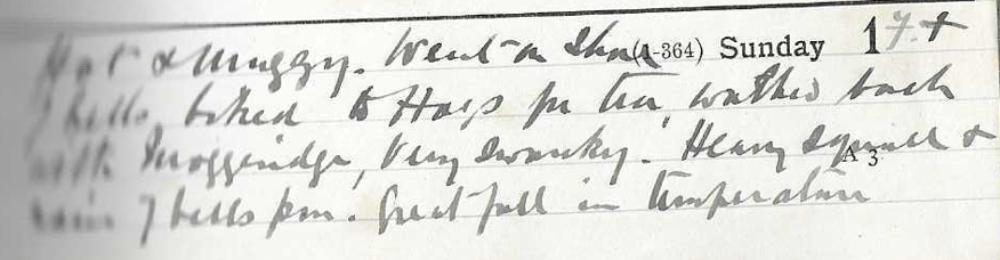 (1-364) Sunday 17.+
Hot & Muggy. Went on Shore
7 bells, biked to Hogs for tea, walked back
with Muggeridge, Very swanky. Heavy squall &
A 3
rain 7 bells pm. Great fall in temperature